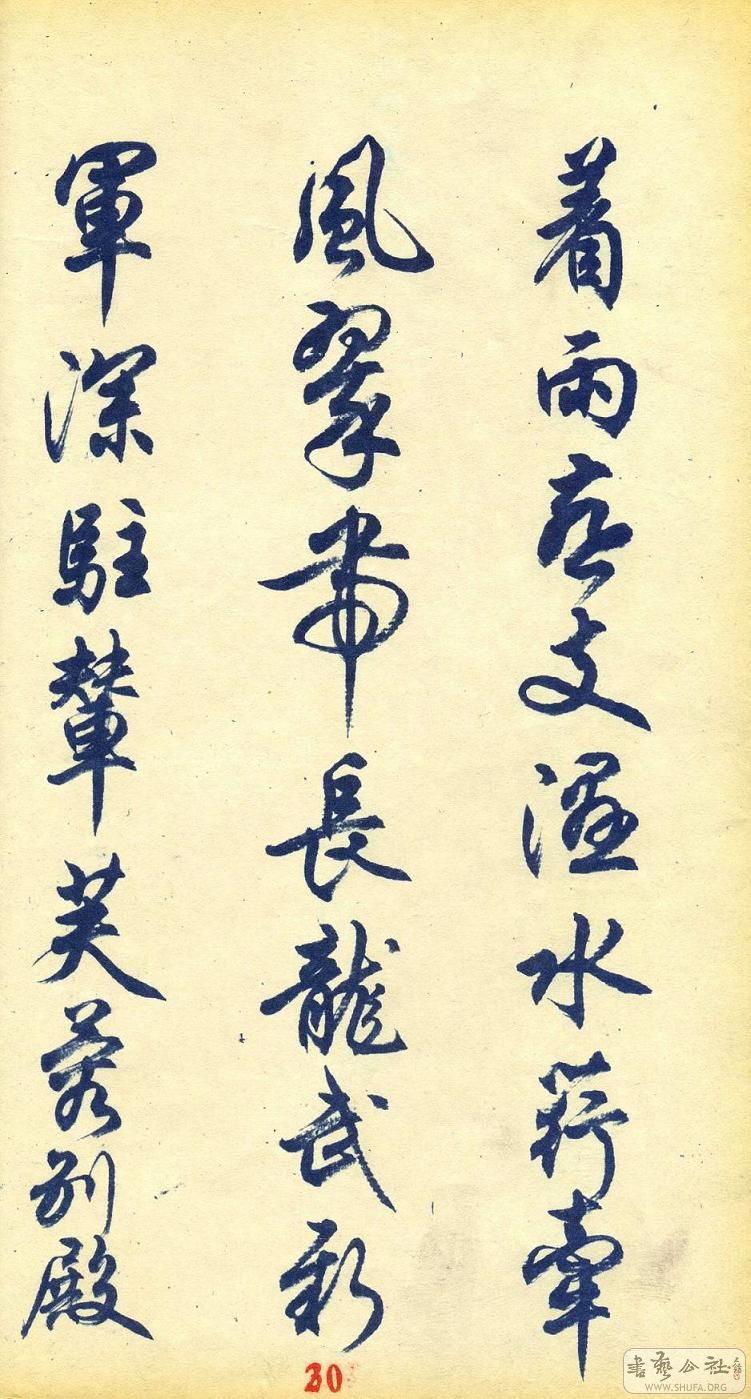 着雨燕支濕水荇牽
風翠帶長龍武新
軍深駐輦芙蓉別殿
30
書藝公社
WWW.SHUFA.ORG